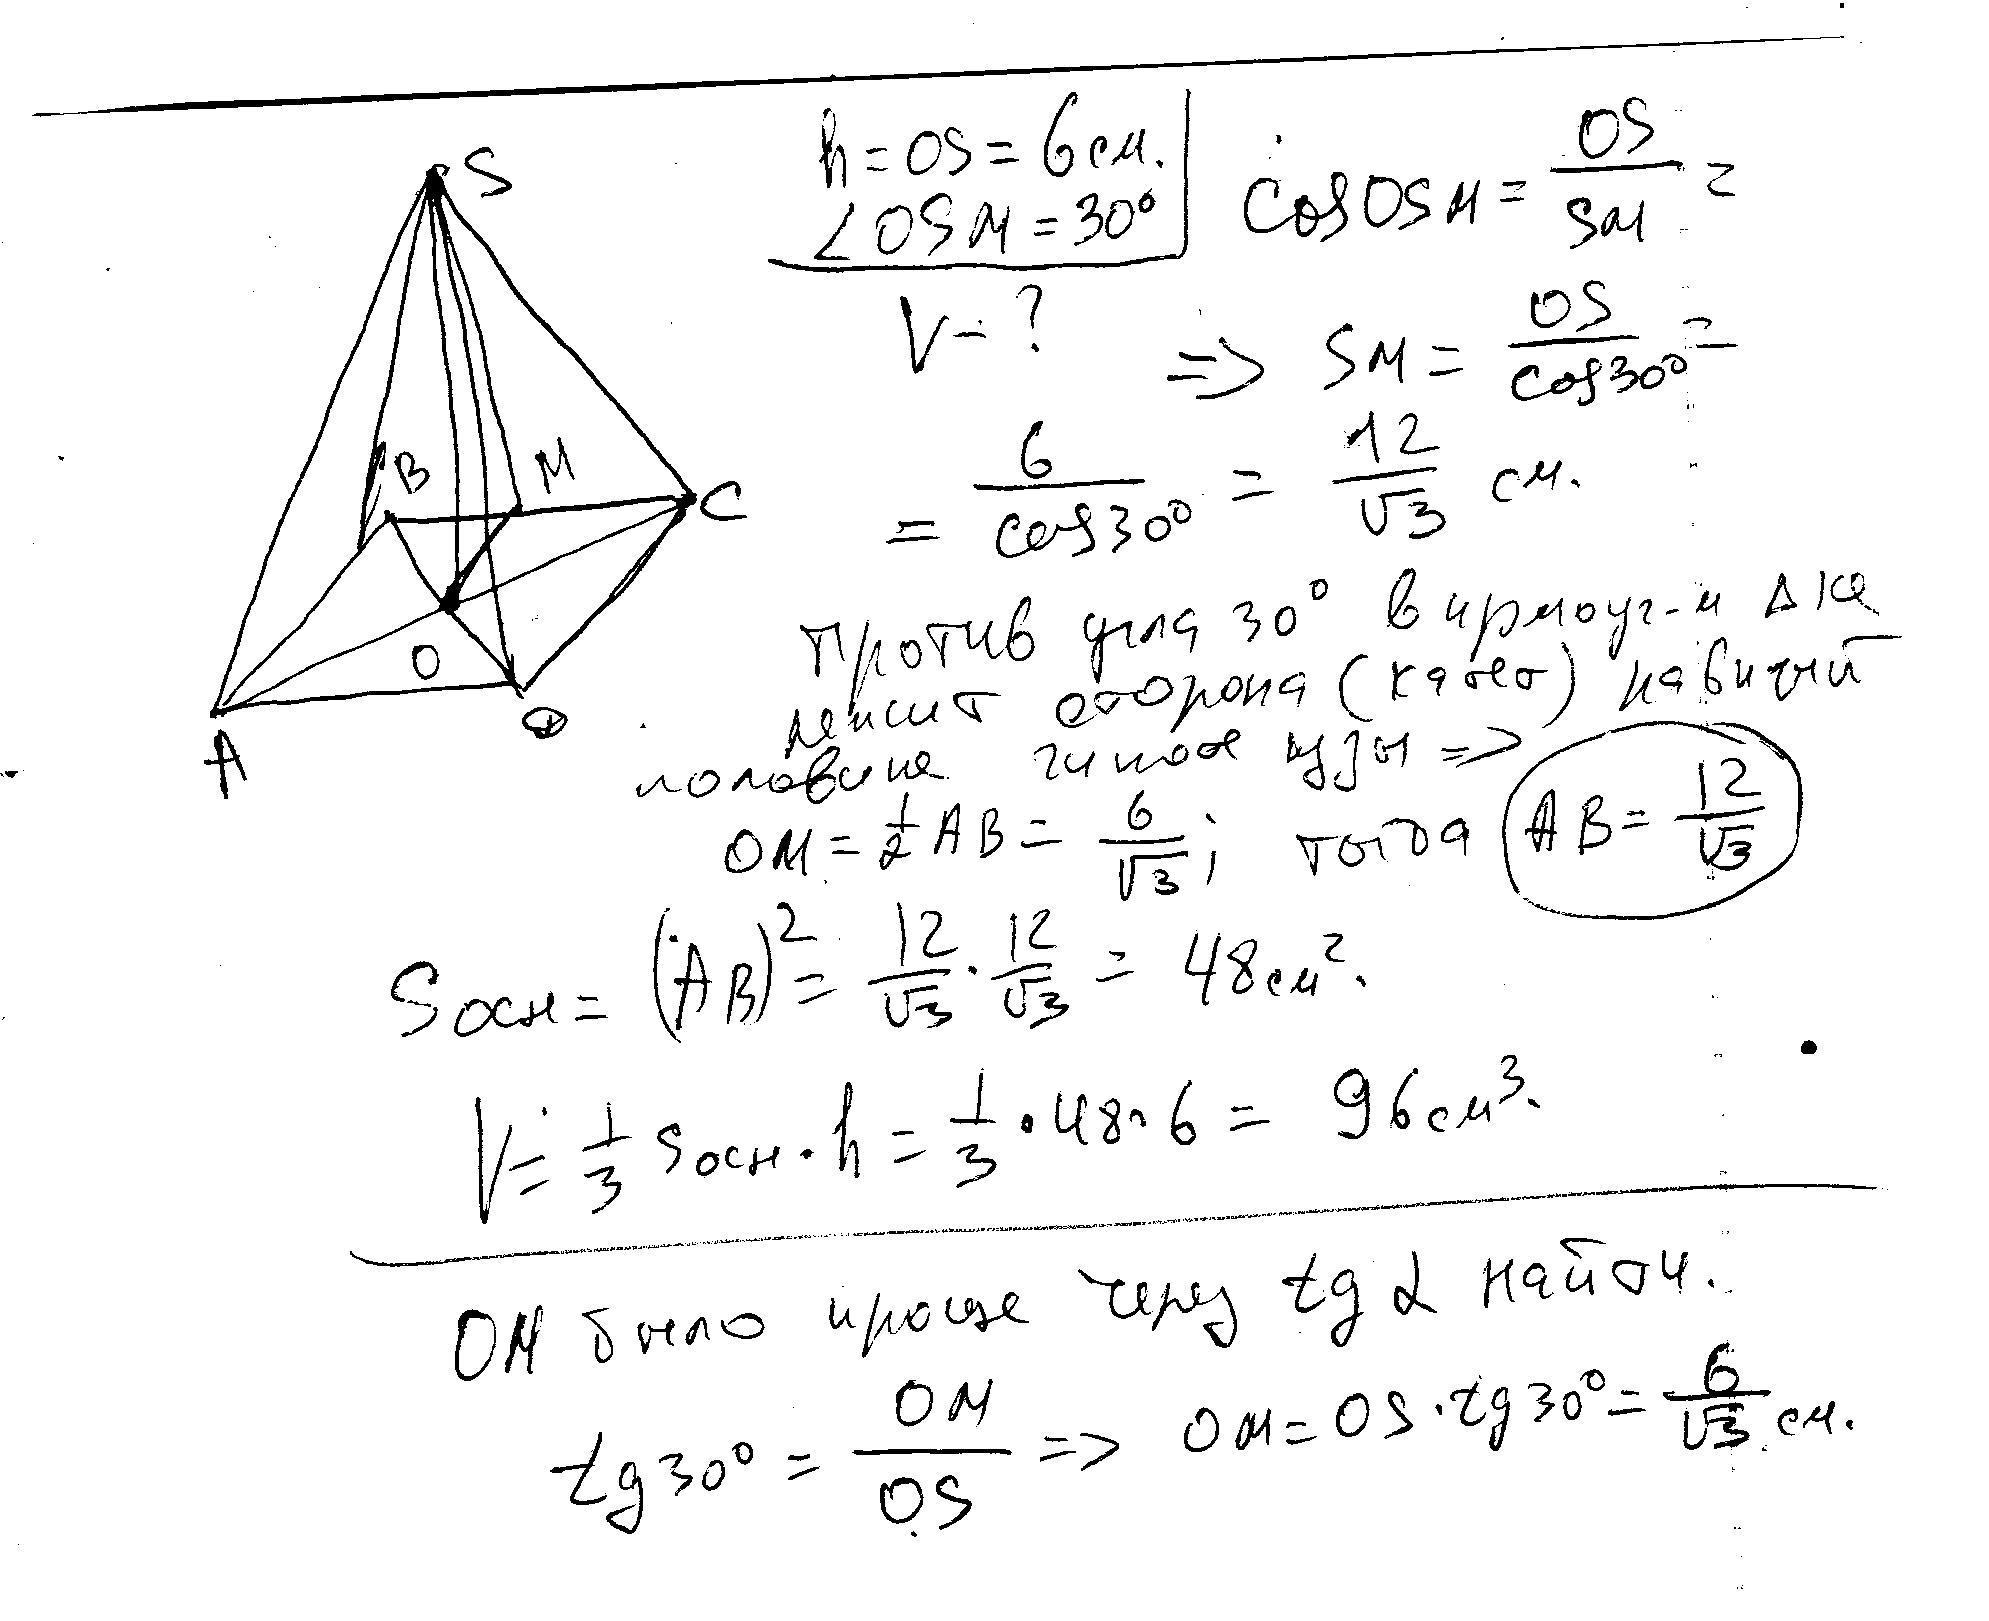 S
B
M
C
O
A
D
h = OS = 6 см.
∠OSM = 30°
V - ?
cos OSM = OS/SM =
=> SM = OS/cos30° =
= 6/cos30° = 12/√3 см.
Против угла 30° в прямоуг-м Δ-ке
лежит сторона (катет) равный
половине гипотенузы =>
OM = 1/2 AB = 6/√3; тогда AB = 12/√3
Sосн = (AB)² = 12/√3 · 12/√3 = 48 см².
V = 1/3 Sосн · h = 1/3 · 48 · 6 = 96 см³.
OM было проще через tg α найти.
tg30° = OM/OS => OM = OS · tg30° = 6/√3 см.